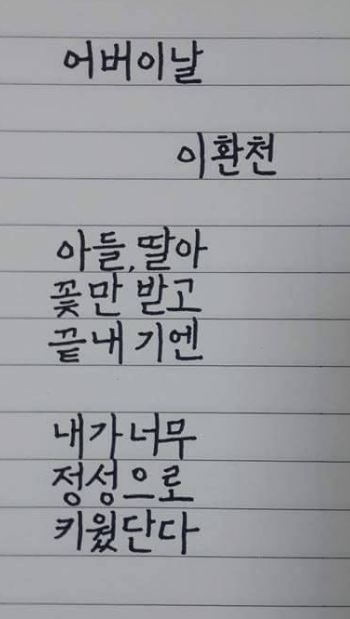 어버이날
이환천
아들,딸아
꽃만 받고
끝내기엔
내가너무
정성으로
키웠단다